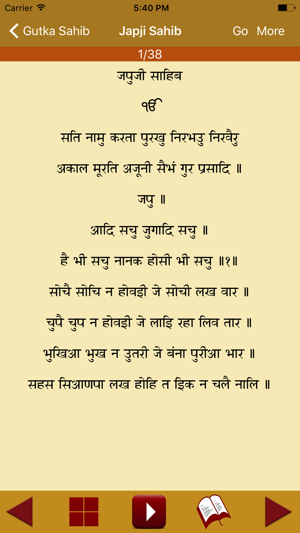 Carrier 5:40 PM
Gutka Sahib Japji Sahib Go More
1/38
जपुजी साहिब
ੴ
सति नामु करता पुरखु निरभउ निरवैरु
अकाल मूरति अजूनी सैभं गुर प्रसादि ॥
जपु ॥
आदि सचु जुगादि सचु ॥
है भी सचु नानक होसी भी सचु ॥१॥
सोचै सोचि न होवई जे सोची लख वार ॥
चुपै चुप न होवई जे लाइ रहा लिव तार ॥
भुखिआ भुख न उतरी जे बंना पुरीआ भार ॥
सहस सिआणपा लख होहि त इक न चलै नालि ॥